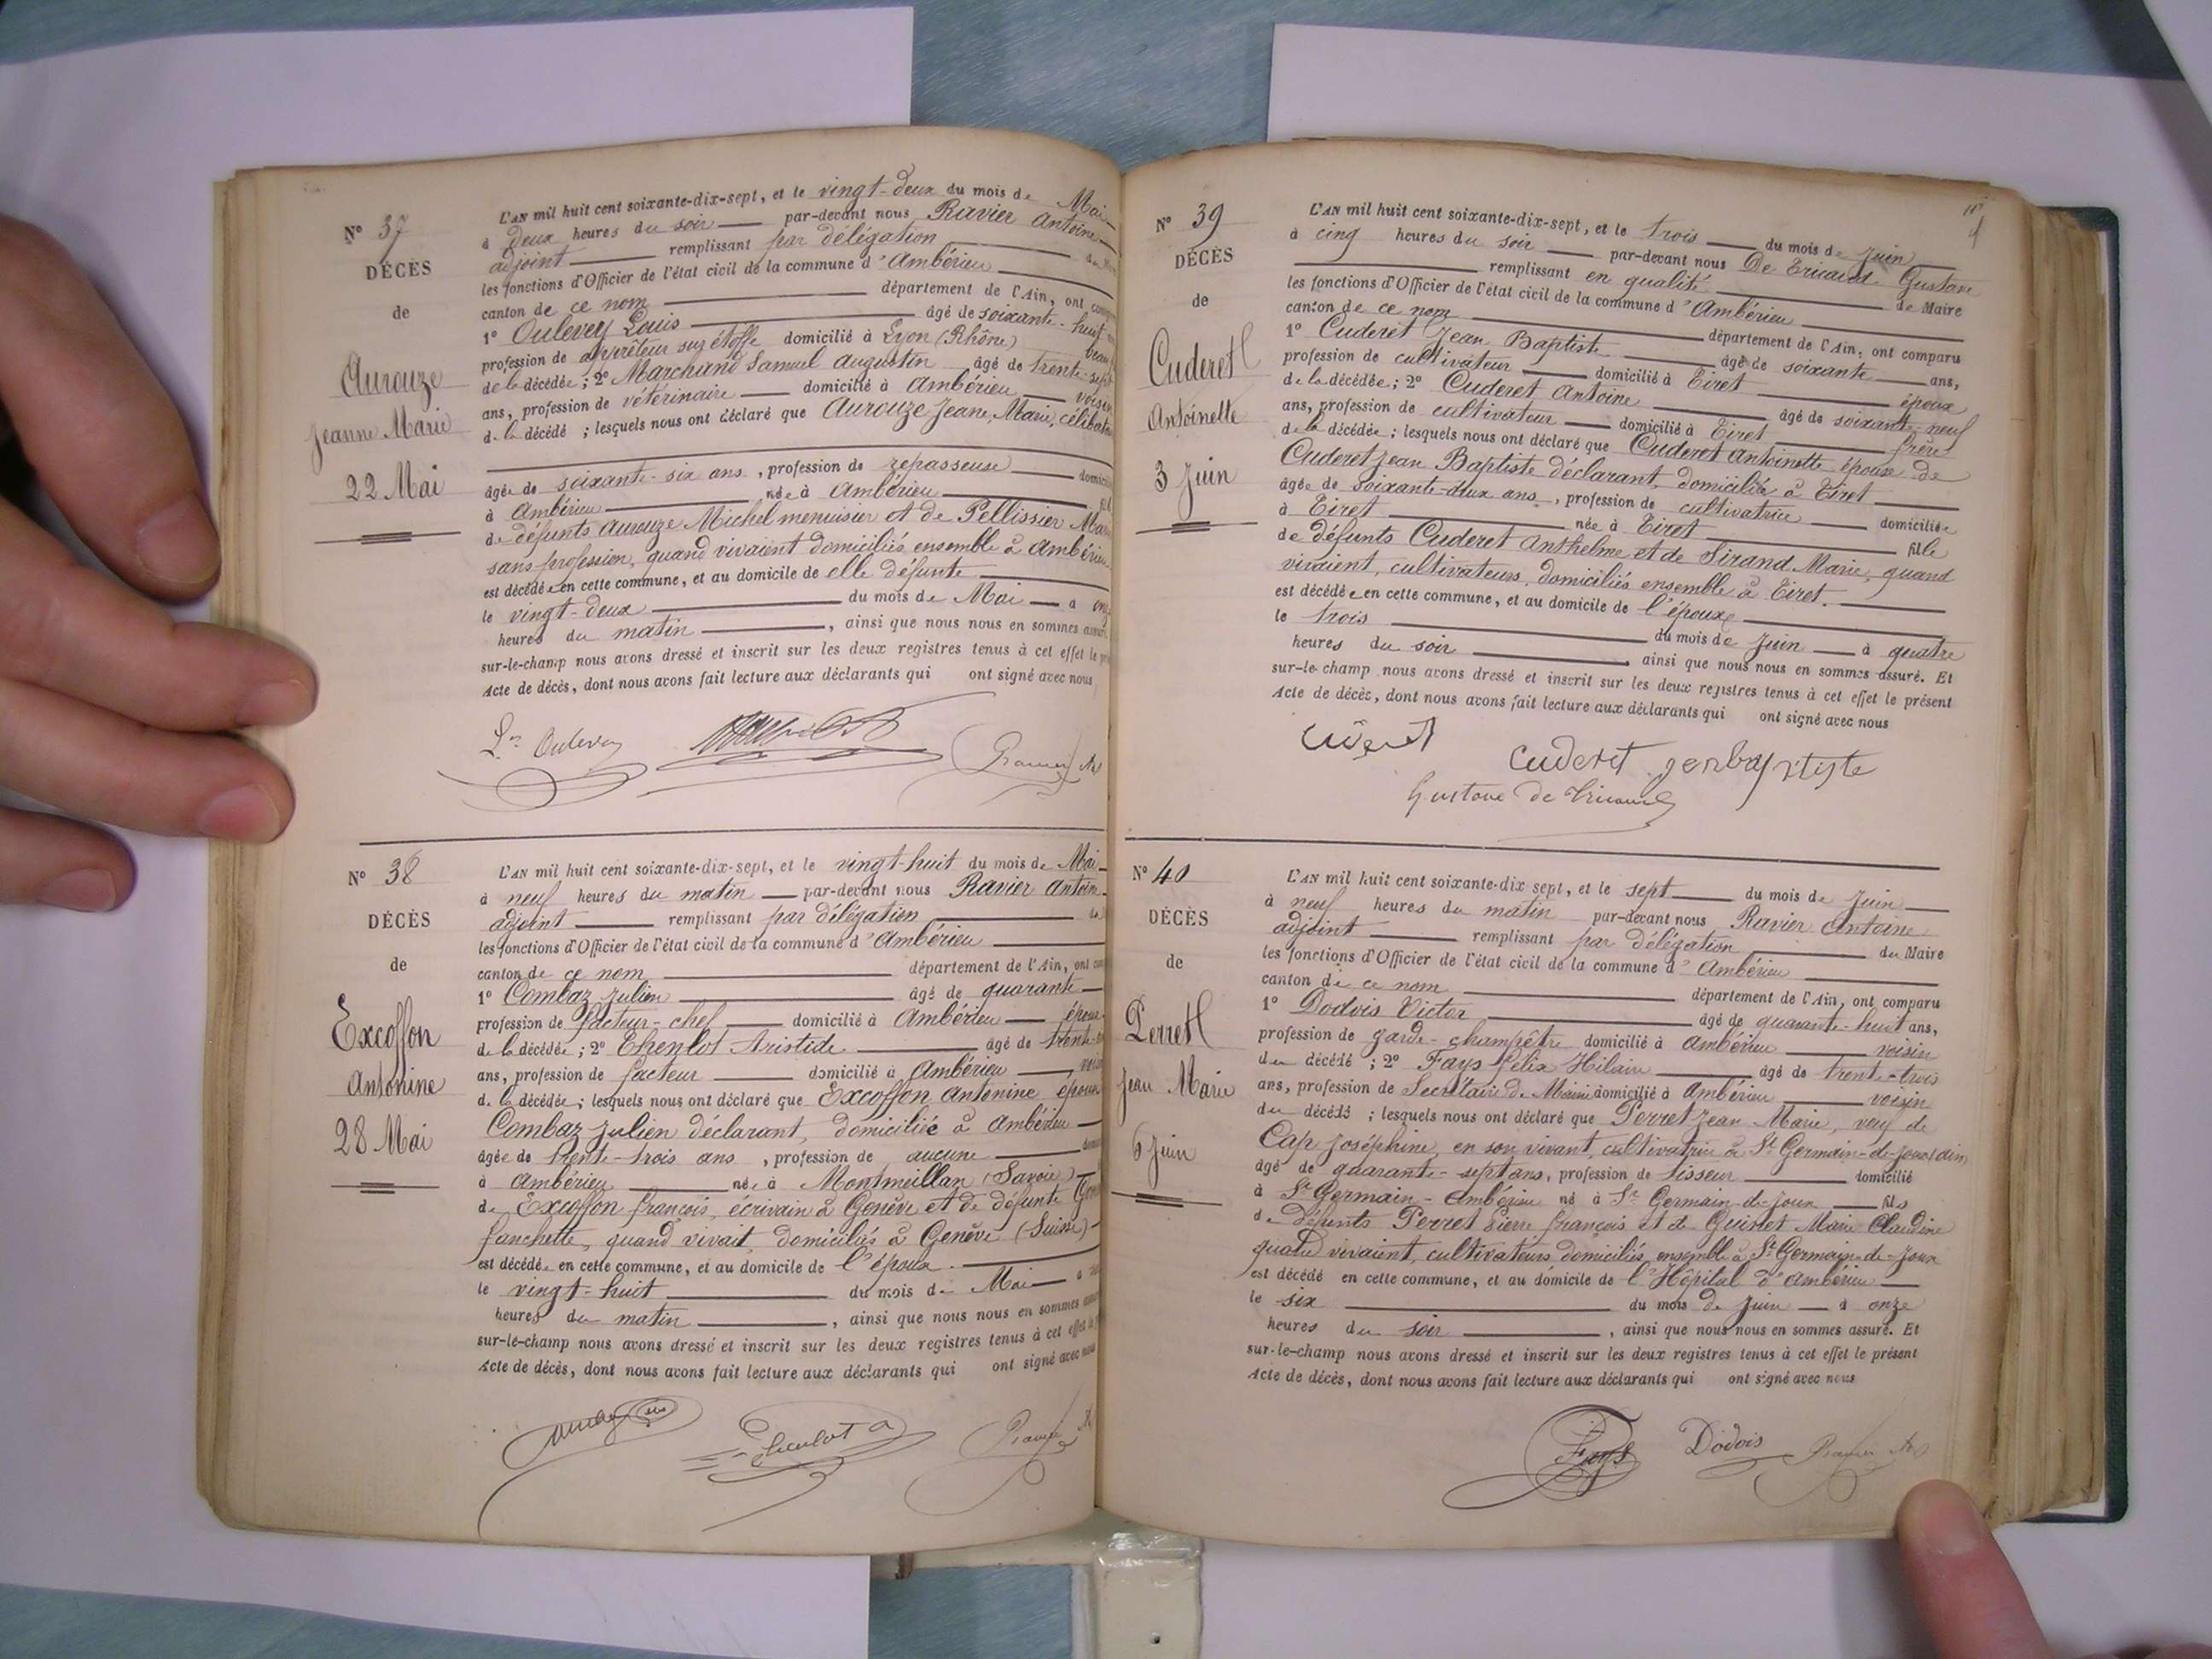 N° 37
DÉCÈS
de
Aurouze
Jeanne Marie
22 Mai
L'AN mil huit cent soixante-dix-sept, et le vingt-deux du mois de Mai
à deux heures du soir par-devant nous Ravier Antoine
adjoint remplissant par délégation du
les fonctions d'Officier de l'état civil de la commune d'Ambérieu
canton de ce nom département de l'Ain, ont
1° Oulevey Louis âgé de soixante-huit
profession de apprêteur sur étoffe domicilié à Lyon (Rhône)
de la décédée ; 2° Marchand Samuel Augustin âgé de trente-sept
ans, profession de vétérinaire domicilié à Ambérieu voisin
de la décédé ; lesquels nous ont déclaré que Aurouze Jeane, Marie,
âgée de soixante-six ans, profession de repasseuse
à Ambérieu née à Ambérieu
de défunts Aurouze Michel menuisier et de Pellissier
sans profession, quand vivaient domiciliés ensemble à Ambérieu
est décédée en cette commune, et au domicile de elle défunte
le vingt-deux du mois de Mai à
heures du matin, ainsi que nous nous en sommes
sur-le-champ nous avons dressé et inscrit sur les deux registres tenus à cet effet le
Acte de décès, dont nous avons fait lecture aux déclarants qui ont signé avec nous
Ls Oulevey
Ravier
N° 38
DÉCÈS
de
Excoffon
Antonine
28 Mai
L'AN mil huit cent soixante-dix-sept, et le vingt-huit du mois de Mai
à neuf heures du matin par-devant nous Ravier Antoine
adjoint remplissant par délégation
les fonctions d'Officier de l'état civil de la commune d'Ambérieu
canton de ce nom département de l'Ain, ont
1° Combaz Julien âgé de quarante
profession de facteur-chef domicilié à Ambérieu
de la décédée ; 2° Thenlot Aristide âgé de
ans, profession de facteur domicilié à Ambérieu
de la décédée ; lesquels nous ont déclaré que Excoffon Antonine
Combaz Julien déclarant, domiciliée à Ambérieu
âgée de trente-trois ans, profession de aucune
à Ambérieu née à Montmeillan (Savoie)
de Excoffon françois, écrivain à Genève et de défunte
fanchette, quand vivait, domiciliés à Genève (Suisse)
est décédée en cette commune, et au domicile de l'époux
le vingt-huit du mois de Mai à
heures du matin, ainsi que nous nous en sommes
sur-le-champ nous avons dressé et inscrit sur les deux registres tenus à cet effet
Acte de décès, dont nous avons fait lecture aux déclarants qui ont signé avec
Ravier
N° 39
DÉCÈS
de
Cuderet
Antoinette
3 Juin
L'AN mil huit cent soixante-dix-sept, et le trois du mois de Juin
à cinq heures du soir par-devant nous De Tricaud Gustave
remplissant en qualité de Maire
les fonctions d'Officier de l'état civil de la commune d'Ambérieu
canton de ce nom département de l'Ain, ont comparu
1° Cuderet Jean Baptiste âgé de soixante ans,
profession de cultivateur domicilié à Tiret époux
de la décédée ; 2° Cuderet Antoine âgé de soixante-neuf
ans, profession de cultivateur domicilié à Tiret frère
de la décédée ; lesquels nous ont déclaré que Cuderet Antoinette épouse de
Cuderet Jean Baptiste déclarant, domiciliée à Tiret
âgée de soixante-deux ans, profession de cultivatrice domiciliée
à Tiret née à Tiret fille
de défunts Cuderet Anthelme et de Sirand Marie, quand
vivaient, cultivateurs, domiciliés ensemble à Tiret.
est décédée en cette commune, et au domicile de l'époux
le trois du mois de Juin à quatre
heures du soir ainsi que nous nous en sommes assuré. Et
sur-le-champ nous avons dressé et inscrit sur les deux registres tenus à cet effet le présent
Acte de décès, dont nous avons fait lecture aux déclarants qui ont signé avec nous
Cuderet genbaptiste
Gustave de Tricaud
N° 40
DÉCÈS
de
Perret
Jean Marie
6 Juin
L'AN mil huit cent soixante-dix sept, et le sept du mois de Juin
à neuf heures du matin par-devant nous Ravier Antoine
adjoint remplissant par délégation du Maire
les fonctions d'Officier de l'état civil de la commune d'Ambérieu
canton de ce nom département de l'Ain, ont comparu
1° Dodois Victor âgé de quarante-huit ans,
profession de garde-champêtre domicilié à Ambérieu voisin
du décédé ; 2° Fays félix Hilaire âgé de trente-trois
ans, profession de Secrétaire de Mairie domicilié à Ambérieu voisin
du décédé ; lesquels nous ont déclaré que Perret Jean Marie, veuf de
Cap Joséphine, en son vivant, cultivatrice à St Germain-de-Joux (Ain)
âgé de quarante-sept ans, profession de tisseur domicilié
à St Germain-Ambérieu né à St Germain-de-Joux fils
de défunts Perret Pierre françois et de Guinet Marie Claudine
quand vivaient, cultivateurs domiciliés, ensemble à St Germain-de-Joux
est décédé en cette commune, et au domicile de l'Hôpital d'Ambérieu
le six du mois de Juin à onze
heures du soir, ainsi que nous nous en sommes assuré. Et
sur-le-champ nous avons dressé et inscrit sur les deux registres tenus à cet effet le présent
Acte de décès, dont nous avons fait lecture aux déclarants qui ont signé avec nous
Fays Dodois Ravier